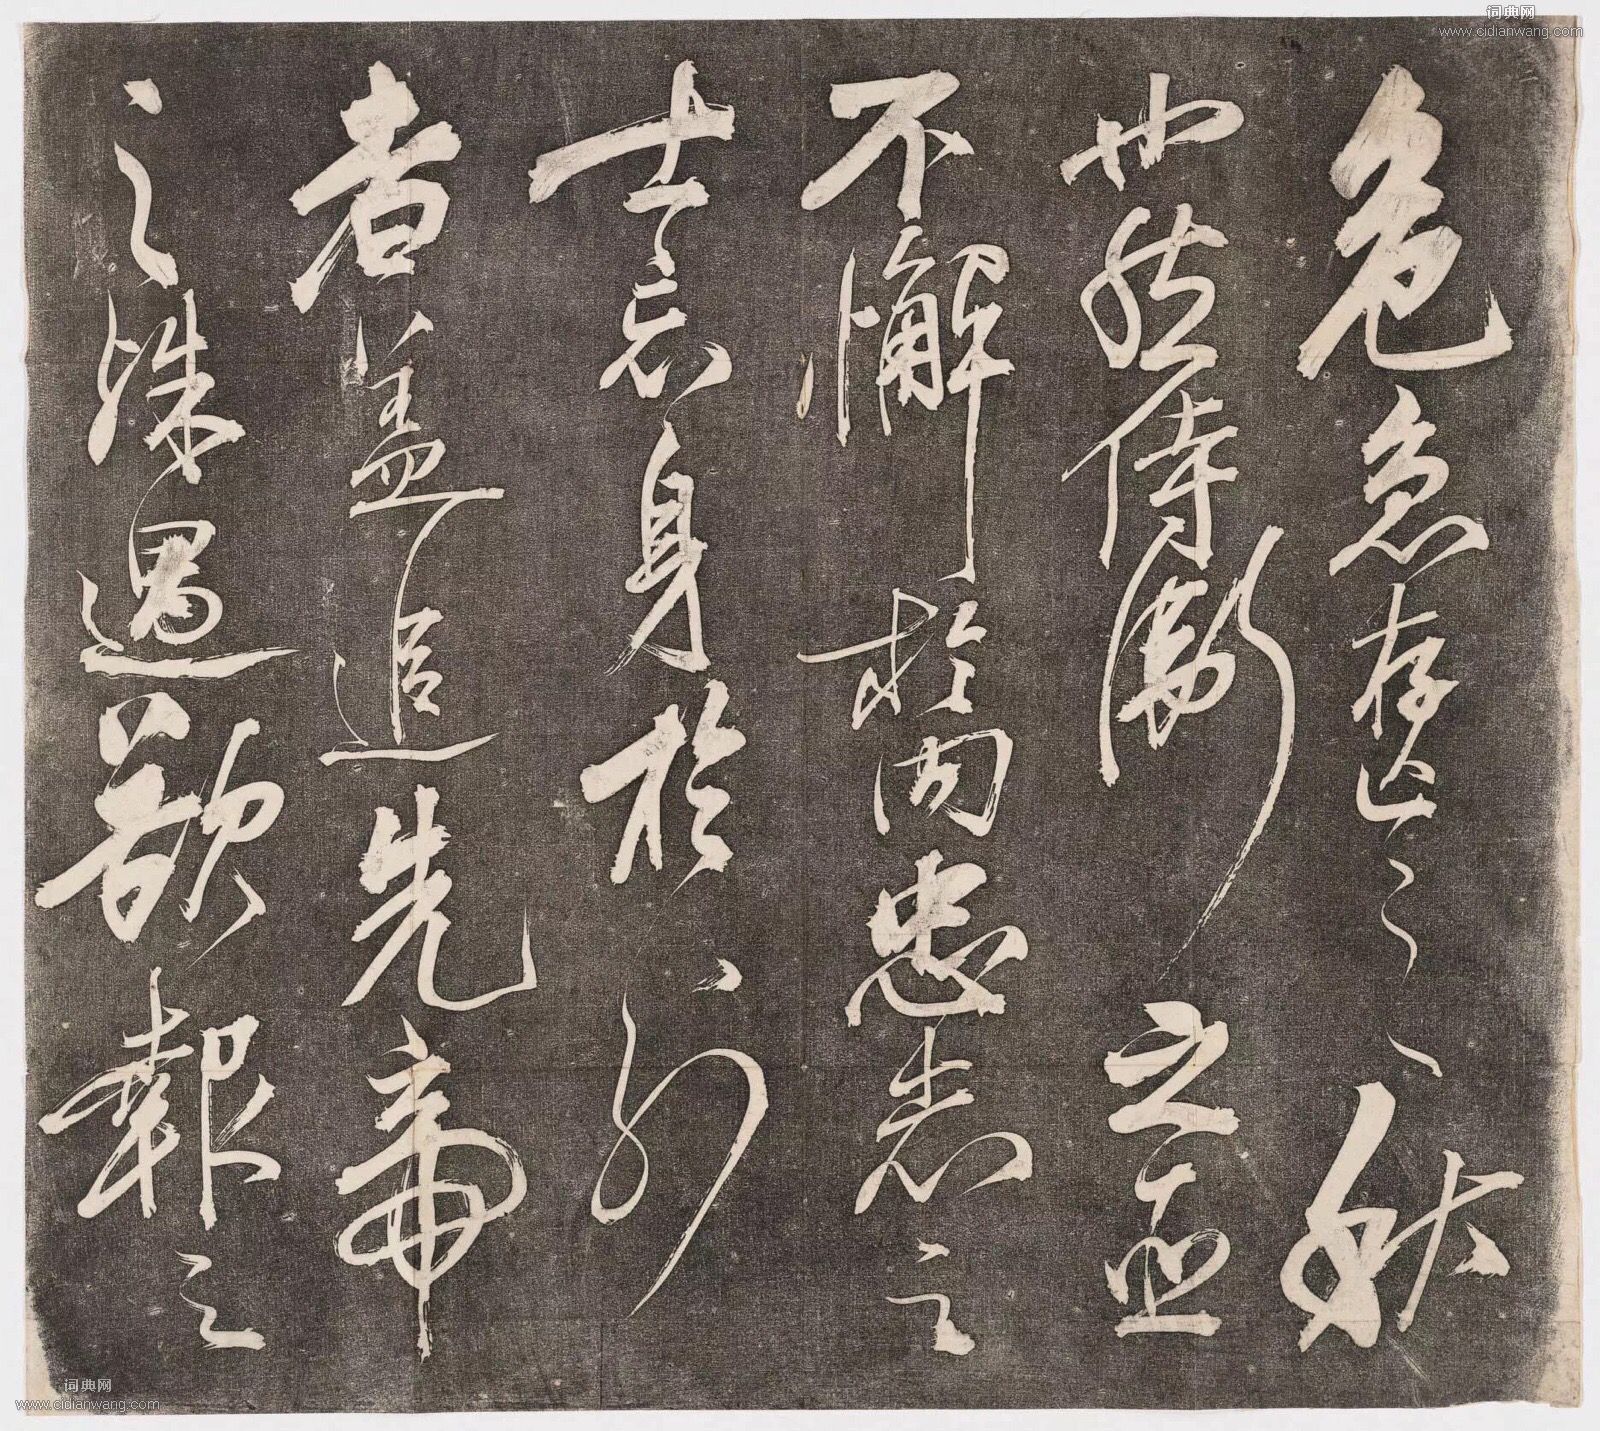 词典网
www.cidianwang.com
危急存亡之秋
也然侍衛之臣
不懈於内忠志之
士忘身於外
者蓋追先帝
之殊遇欲報之
词典网
www.cidianwang.com